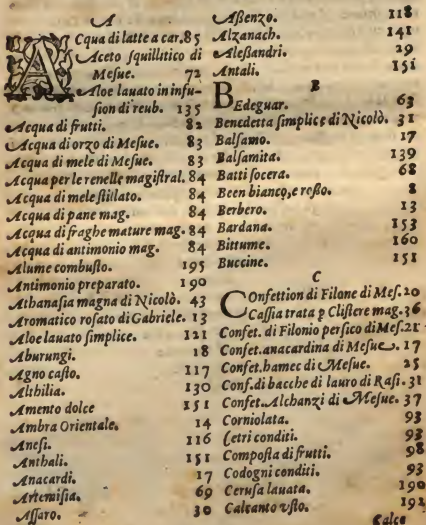 A
Acqua di latte a car. 85
Aceto squillitico di
Mesue. 72
Aloe lauato in infu-
sion di reub. 135
Acqua di frutti. 82
Acqua di orzo di Mesue. 83
Acqua di mele di Mesue. 83
Acqua per le renelle magistral. 84
Acqua di mele stillato. 84
Acqua di pane mag. 84
Acqua di fraghe mature mag. 84
Acqua di antimonio mag. 84
Alume combusto. 195
Antimonio preparato. 190
Athanasia magna di Nicolò. 43
Aromatico rosato di Gabriele. 13
Aloe lauato simplice. 121
Aburungi. 18
Agno casto. 117
Althilia. 130
Amento dolce 151
Ambra Orientale. 14
Anesi. 116
Anthali. 151
Anacardi. 17
Artemisia. 69
Assaro. 30
Assenzo. 118
Alzanach. 141
Alessandri. 29
Antali. 151
B
Bedeguar. 63
Benedetta simplice di Nicolò. 31
Balsamo. 17
Balsamita. 139
Batti socera. 68
Been bianco, e rosso. 8
Berbero. 13
Bardana. 153
Bittume. 160
Buccine. 151
C
Confettion di Filone di Mes. 20
Cassia trata p Clistere mag. 36
Confet. di Filonio persico di Mes. 21
Confet. anacardina di Mesue. 17
Confet. hamec di Mesue. 25
Conf. di bacche di lauro di Rasi. 31
Confet. Alchanzi di Mesue. 37
Corniolata. 93
Cetri conditi. 93
Composta di frutti. 98
Codogni conditi. 93
Cerusa lauata. 190
Calcanto vsto. 192
Calce